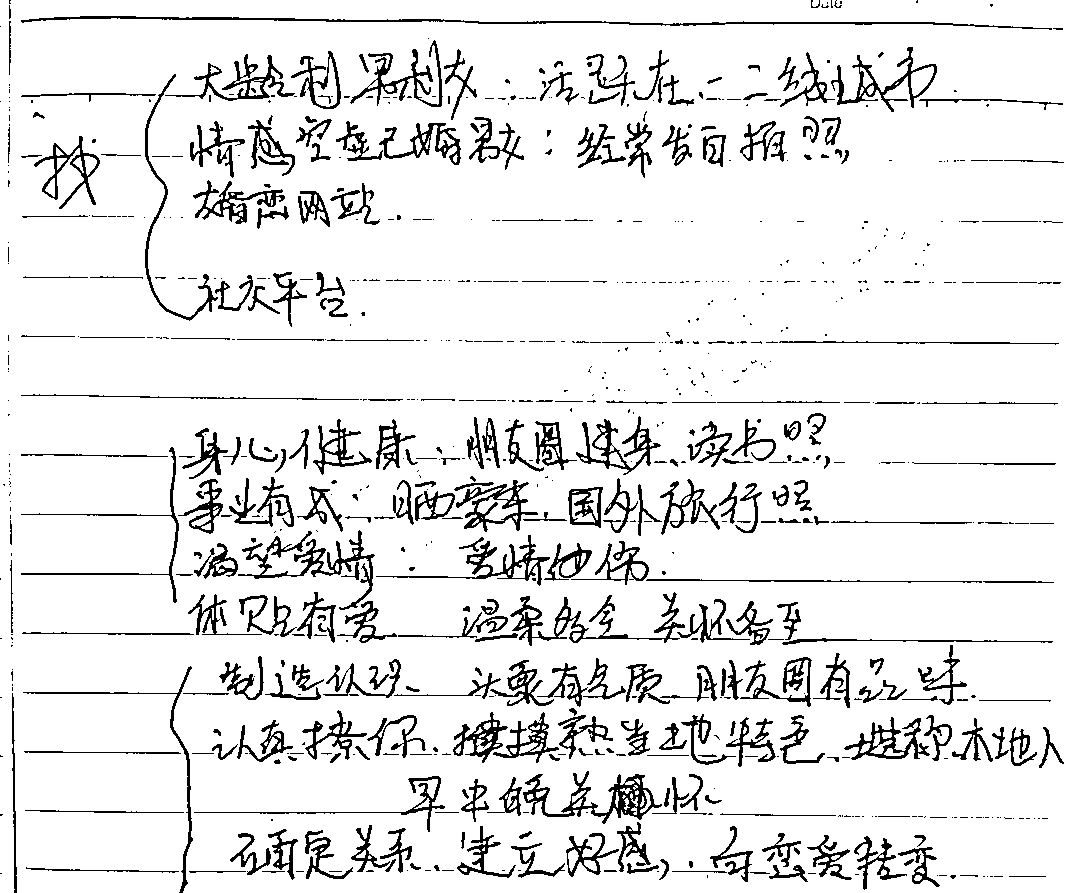 Date
找
大龄剩男剩女：活跃在一二线城市
情感空虚已婚男女：经常发自拍照
婚恋网站.
社交平台.
身心健康：朋友圈健身、读书照
事业有成：晒豪车.国外旅行照
渴望爱情：爱情
体贴有爱 温柔 关怀备至
制造 头像有气质 朋友圈有品味.
认真撩你.摸摸熟当地特色、谎称本地人
早中晚关怀
确定关系、建立好感，.向恋爱转变.